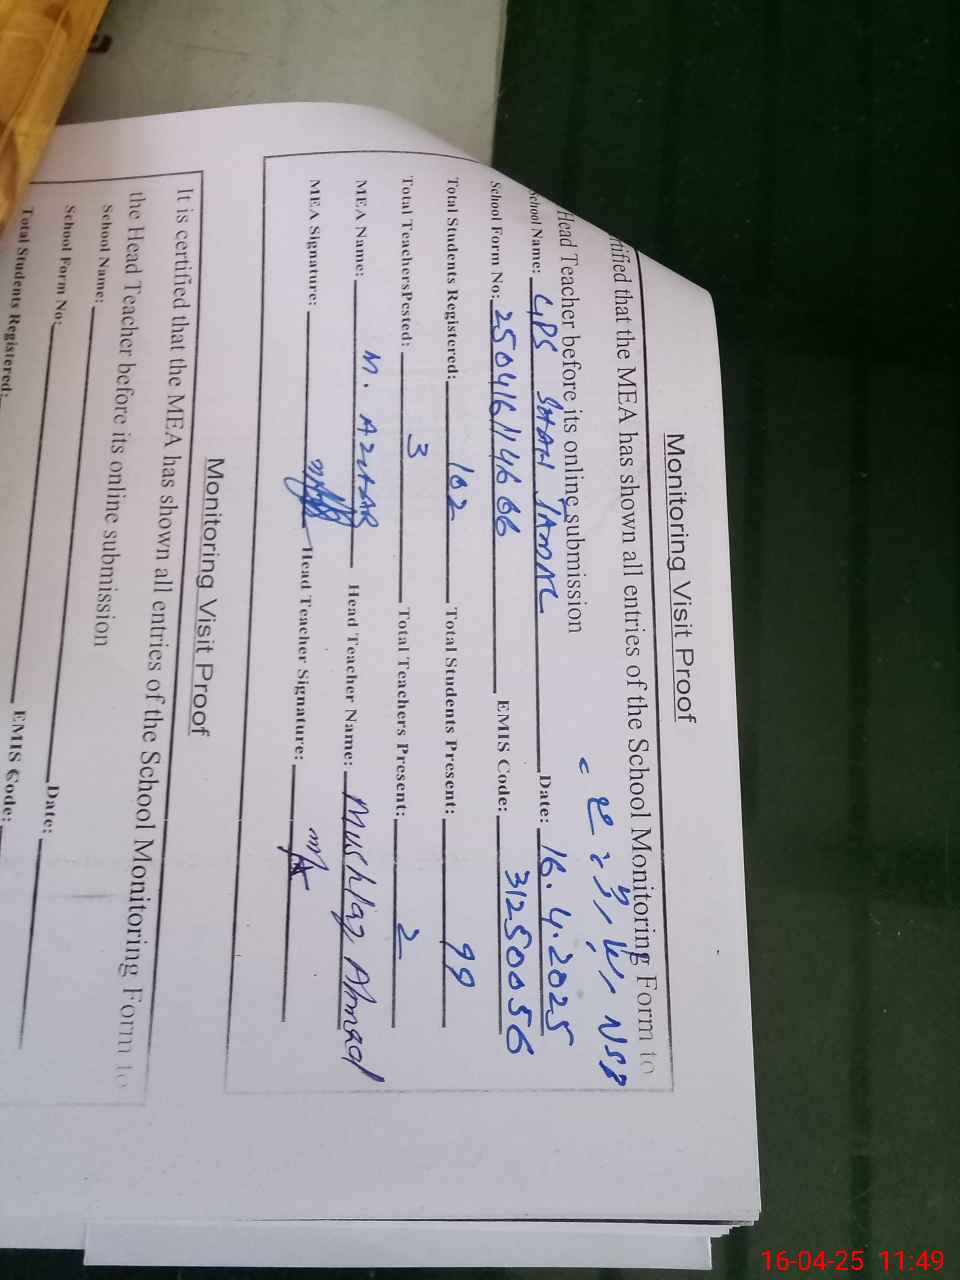 Monitoring Visit Proof
tified that the MEA has shown all entries of the School Monitoring Form to
Head Teacher before its online submission
NSB
School Name: GPS SHAH JAMAL Date: 16.4.2025
School Form No: 25041611466 EMIS Code: 31250056
Total Students Registered: 102 Total Students Present: 99
Total TeachersPested: 3 Total Teachers Present: 2
MEA Name: M. AZHAR Head Teacher Name: Mushtaq Ahmad
MEA Signature: Head Teacher Signature:
Monitoring Visit Proof
It is certified that the MEA has shown all entries of the School Monitoring Form to
the Head Teacher before its online submission
School Name: Date:
School Form No: EMIS Code:
Total Students Registered:
16-04-25 11:49